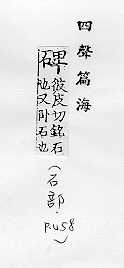 四聲篇海
碑 彼皮切銘石
也又卧石也
(石部. P.458)